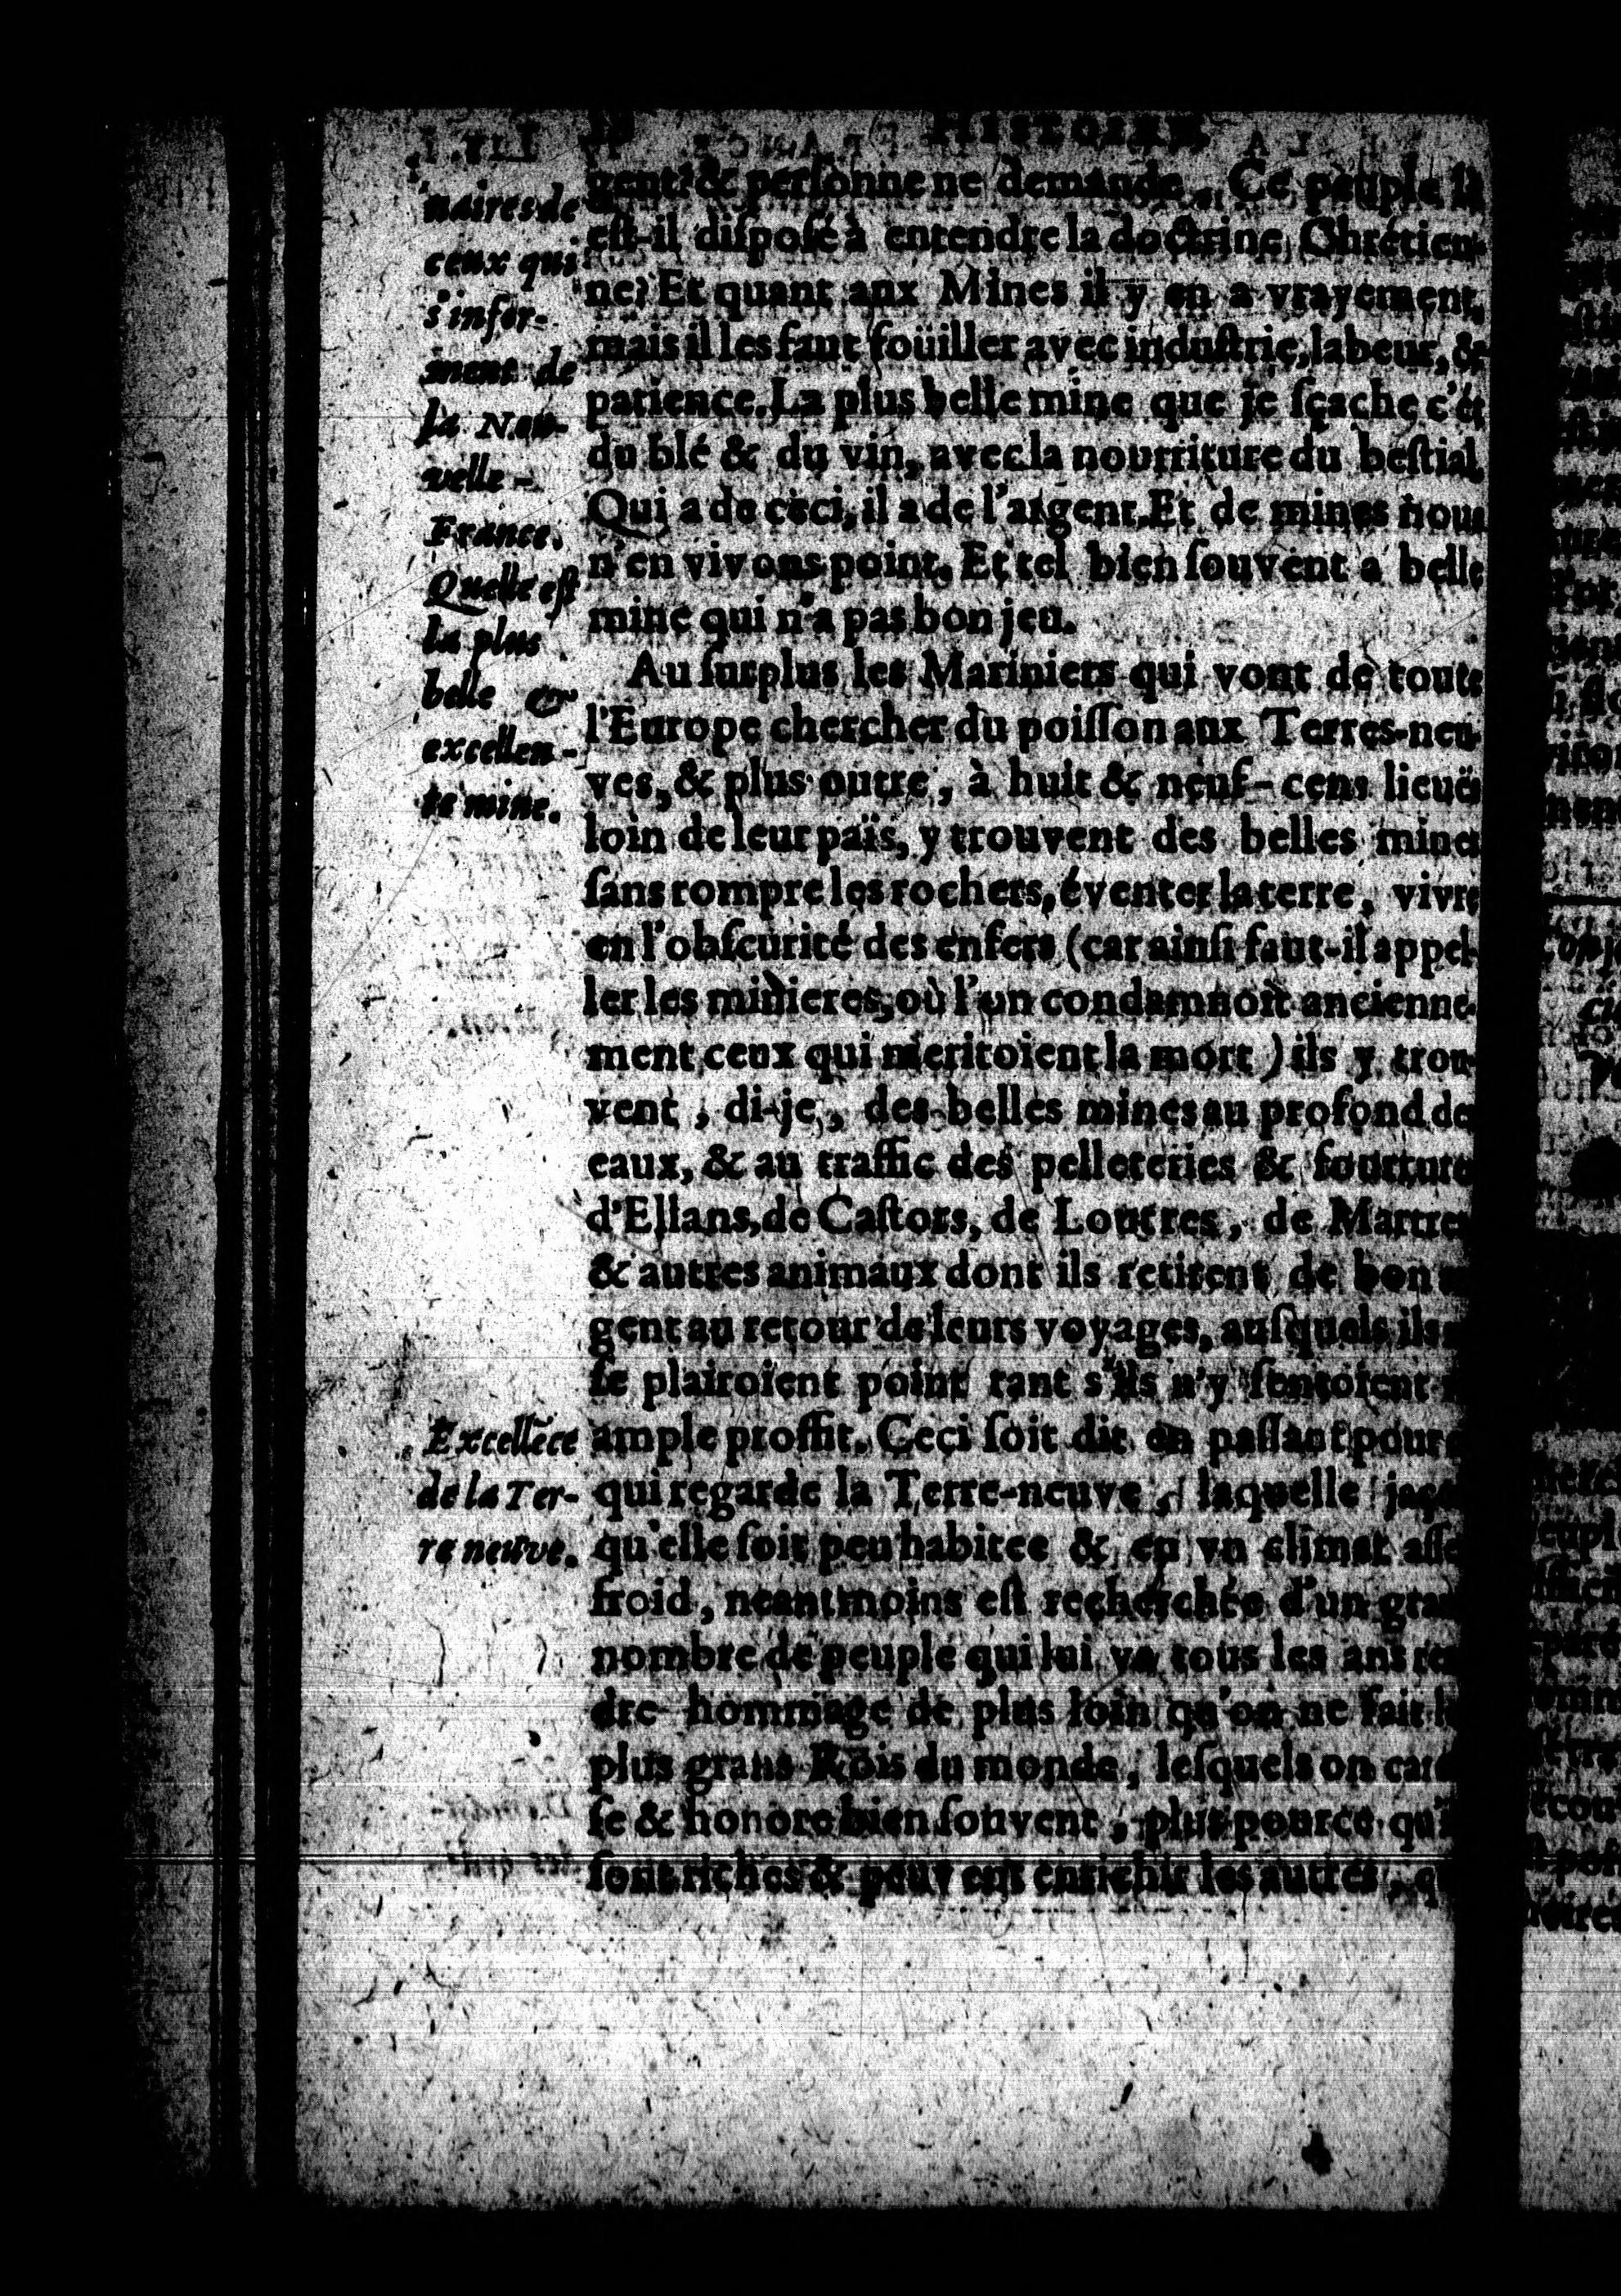 HISTOIRE
naires de
ceux qui
s'infor-
ment de
la Nou-
velle-
France.
Quelle est
la plus
belle &
excellen-
te mine.
gent? & personne ne demande, Ce peuple là
est-il disposé à entendre la doctrine Chrétien-
ne? Et quant aux Mines il y en a vrayement,
mais il les faut foüiller avec industrie, labeur, &
patience. La plus belle mine que je sçache c'ét
du blé & du vin, avec la nourriture du bestial.
Qui a de ceci, il a de l'argent. Et de mines nous
n'en vivons point. Et tel bien souvent a belle
mine qui n'a pas bon jeu.
Au surplus les Mariniers qui vont de toute
l'Europe chercher du poisson aux Terres-neu-
ves, & plus outre, à huit & neuf-cens lieuës
loin de leur païs, y trouvent des belles mines
sans rompre les rochers, éventer la terre, vivre
en l'obscurité des enfers (car ainsi faut-il appel-
ler les minieres, où l'on condamnoit ancienne-
ment ceux qui meritoient la mort) ils y trou-
vent, di-je, des belles mines au profond de
eaux, & au traffic des pelleteries & fourrure
d'Ellans, de Castors, de Loutres, de Martre
& autres animaux dont ils retirent de bon
gent au retour de leurs voyages, ausquels ils
se plairoient point tant s'ils n'y sentoient
Excellēce
de la Ter-
re neuve.
ample proffit. Ceci soit dit en passant pour
qui regarde la Terre-neuve, laquelle jaço
qu'elle soit peu habitee & en vn climat asse
froid, neantmoins est recherchée d'un gran
nombre de peuple qui lui va tous les ans re
dre hommage de plus loin qu'on ne fait
plus grans Rois du monde, lesquels on care
se & honore bien souvent, plus pource qu'i
sont riches & peuvent enrichir les autres, qu